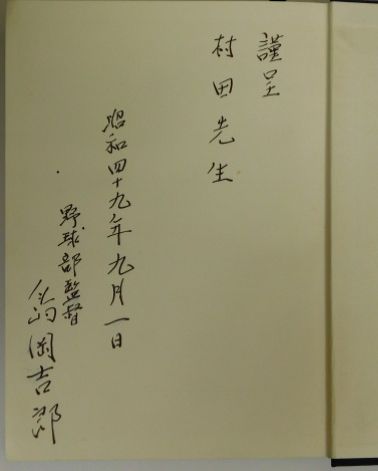 謹呈
村田先生
昭和四十九年九月一日
野球部監督
島岡吉郎